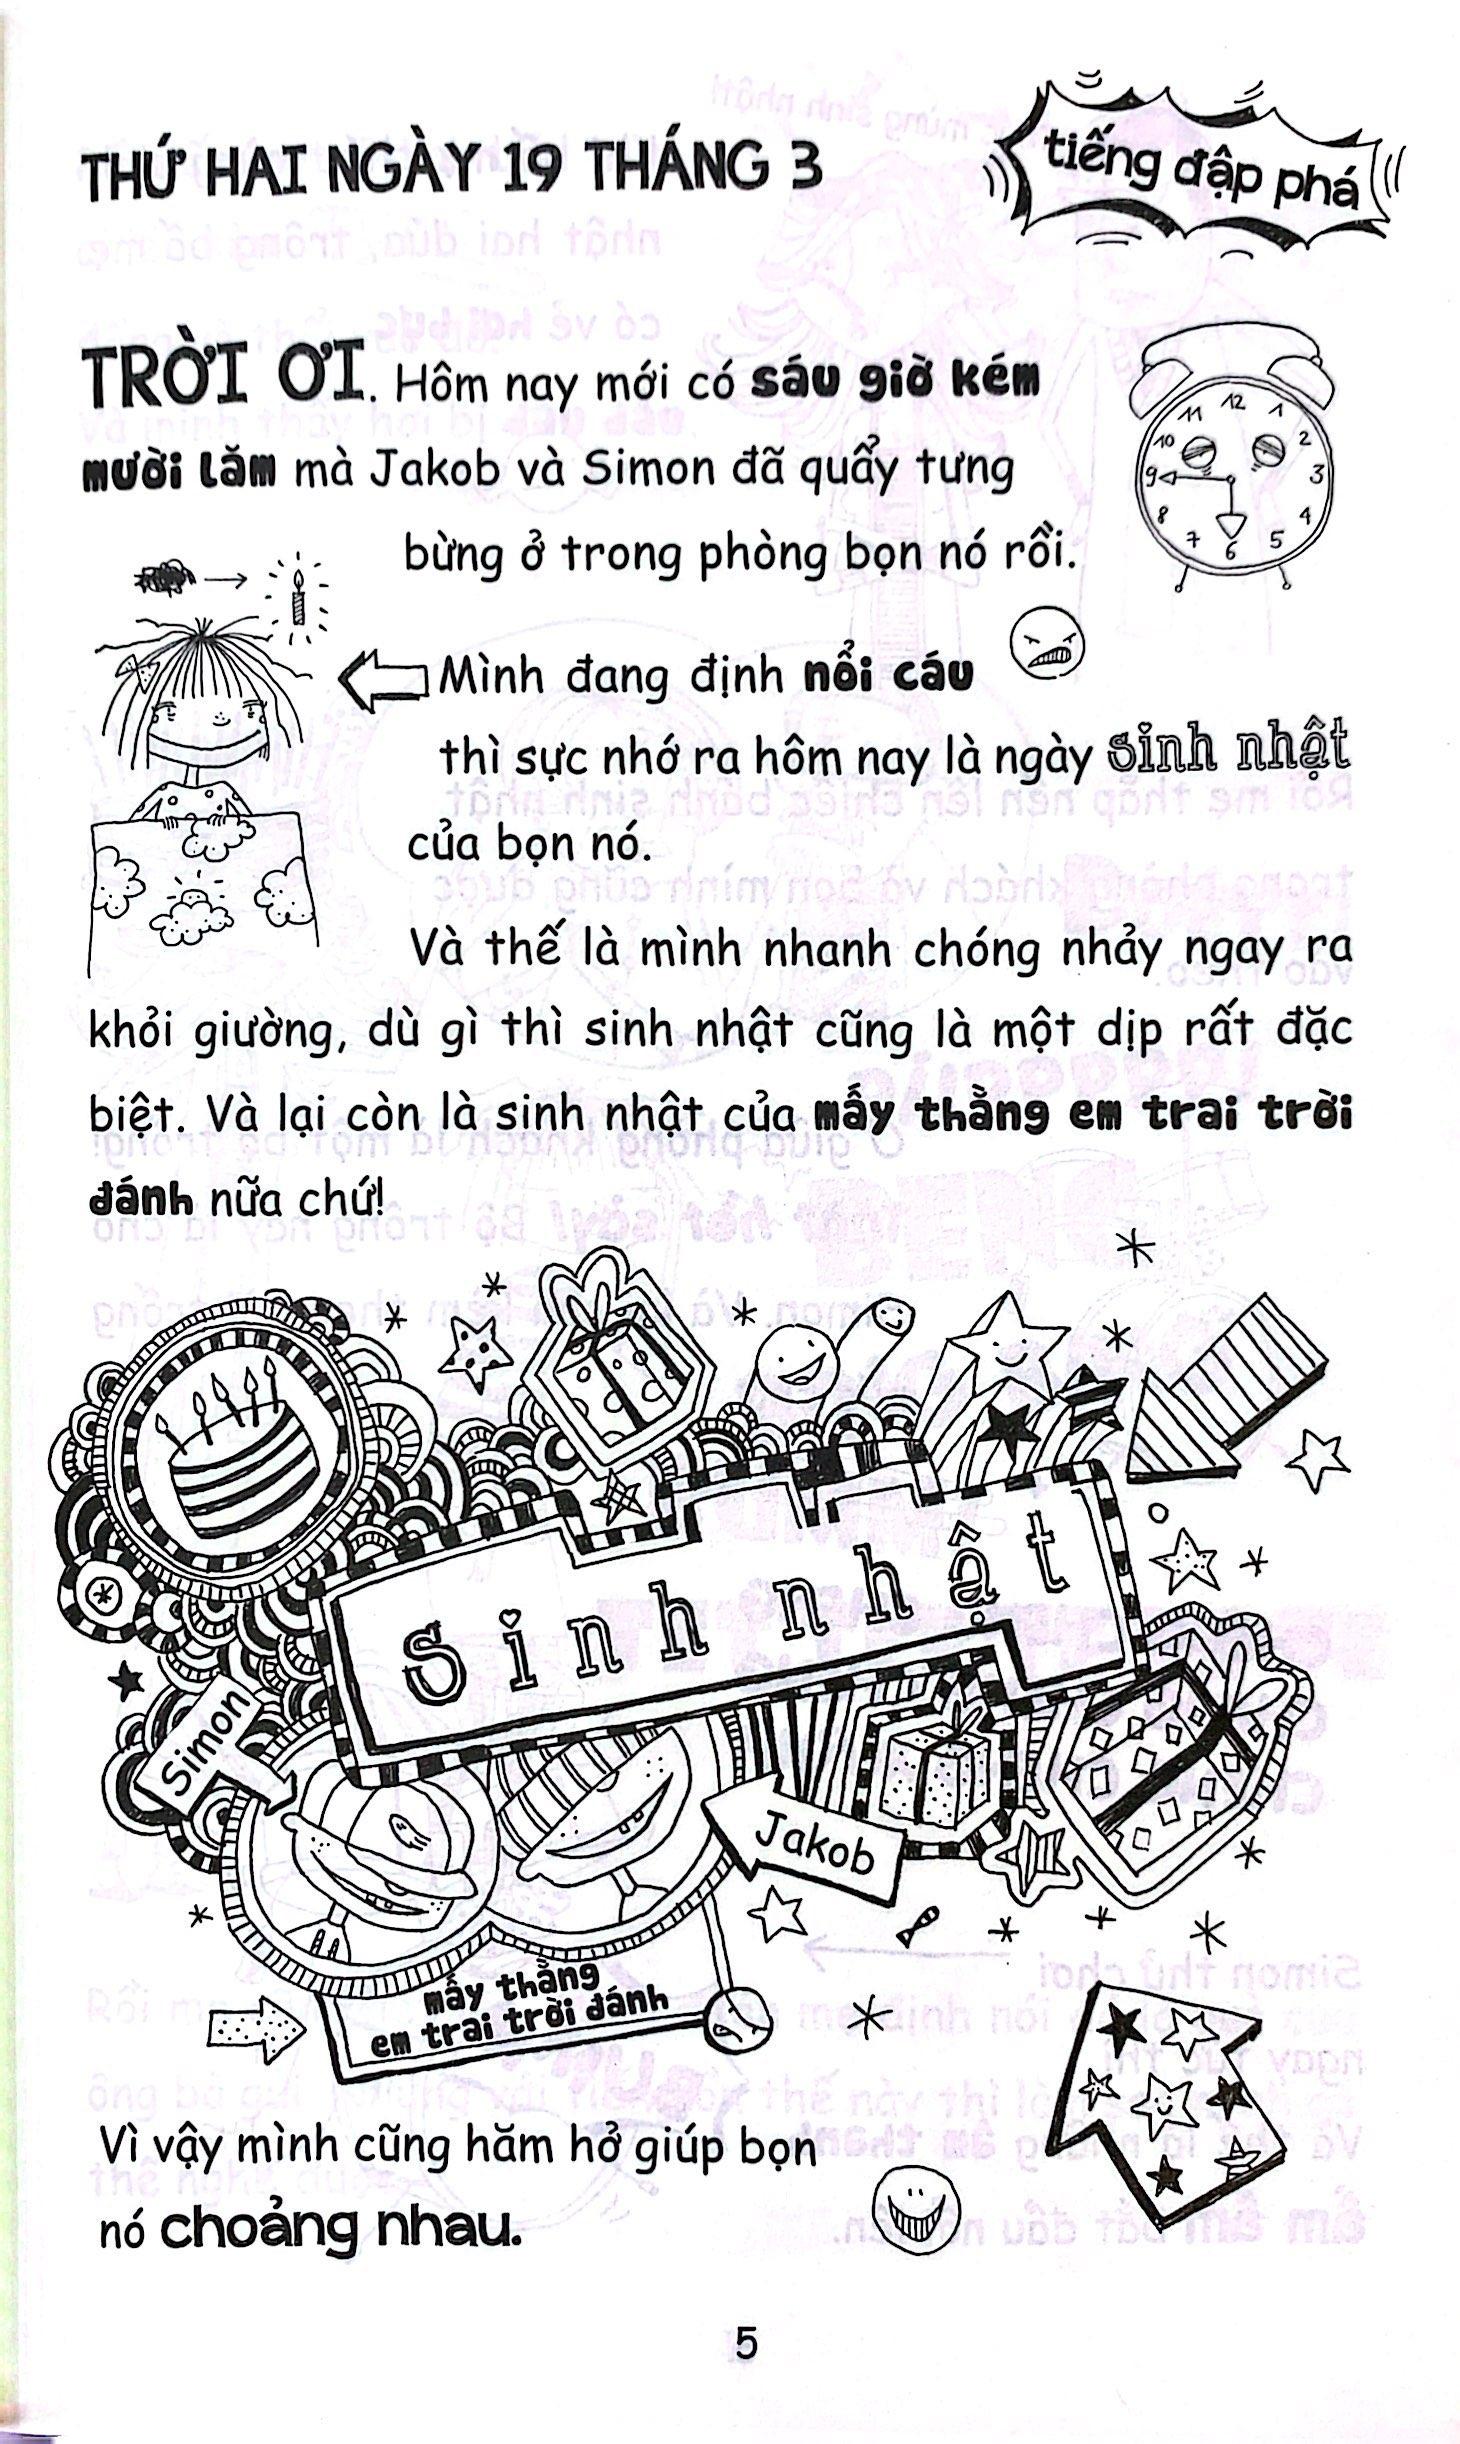 THỨ HAI NGÀY 19 THÁNG 3
tiếng đập phá
TRỜI ƠI. Hôm nay mới có sáu giờ kém
mười lăm mà Jakob và Simon đã quẩy tưng
bừng ở trong phòng bọn nó rồi.
12
1
2
3
4
5
6
7
8
9
10
11
Mình đang định nổi cáu
thì sực nhớ ra hôm nay là ngày sinh nhật
của bọn nó.
Và thế là mình nhanh chóng nhảy ngay ra
khỏi giường, dù gì thì sinh nhật cũng là một dịp rất đặc
biệt. Và lại còn là sinh nhật của mấy thằng em trai trời
đánh nữa chứ!
Sinh nhật
Simon
Jakob
mấy thằng
em trai trời đánh
Vì vậy mình cũng hăm hở giúp bọn
nó choảng nhau.
5